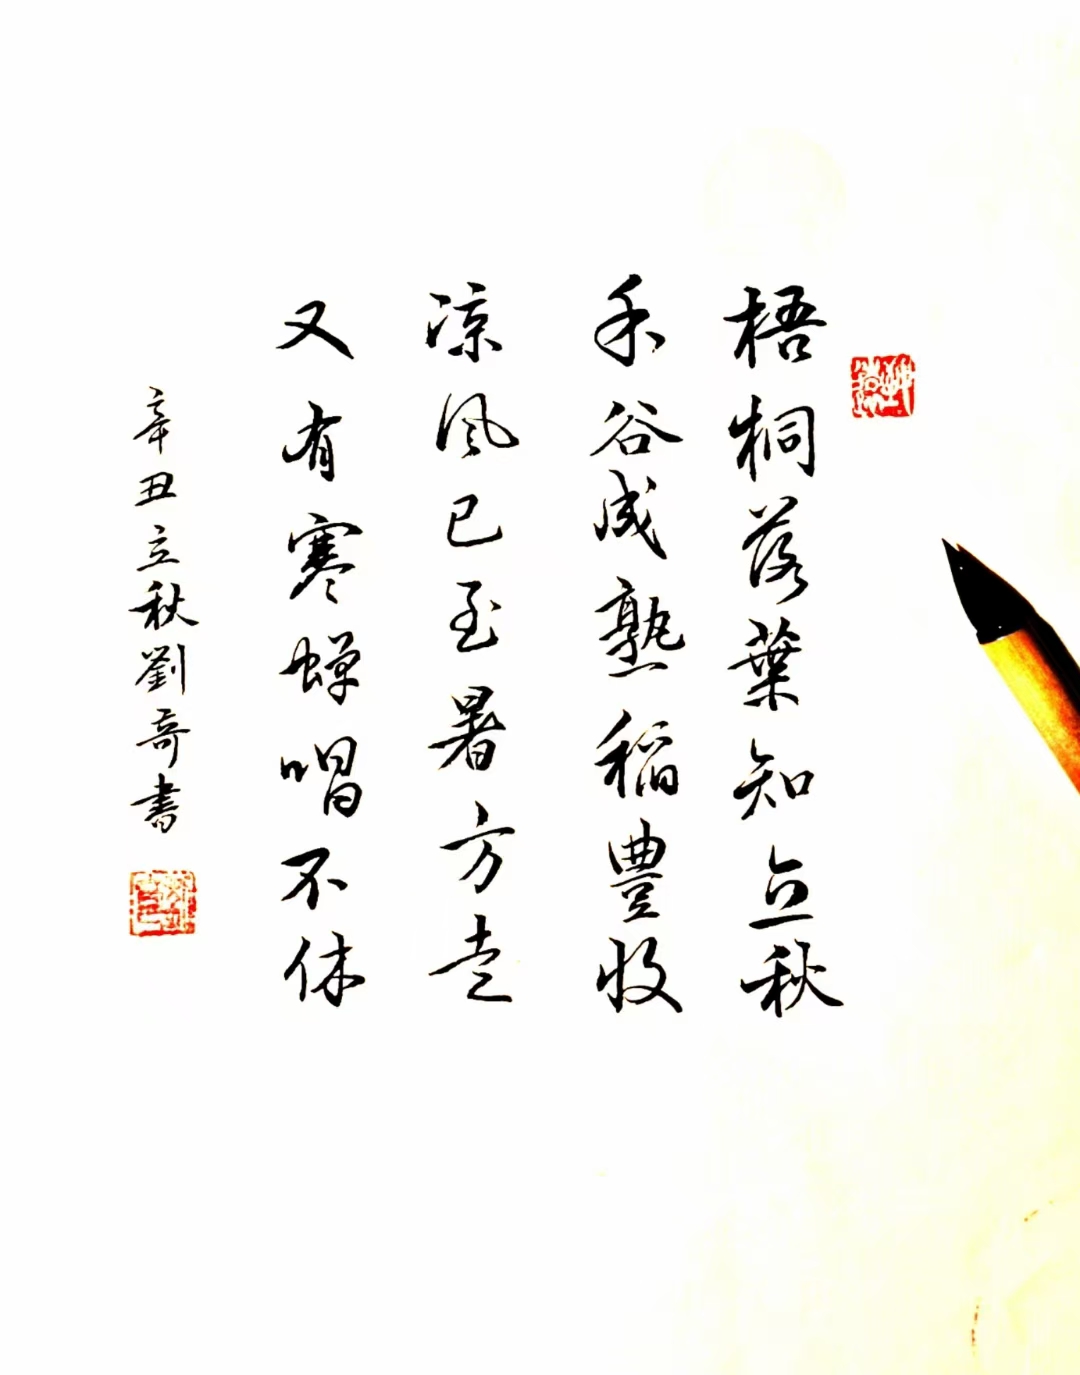 梧桐落葉知立秋
禾谷成熟稻豊收
凉风已至暑方走
又有寒蝉唱不休
辛丑立秋劉奇書